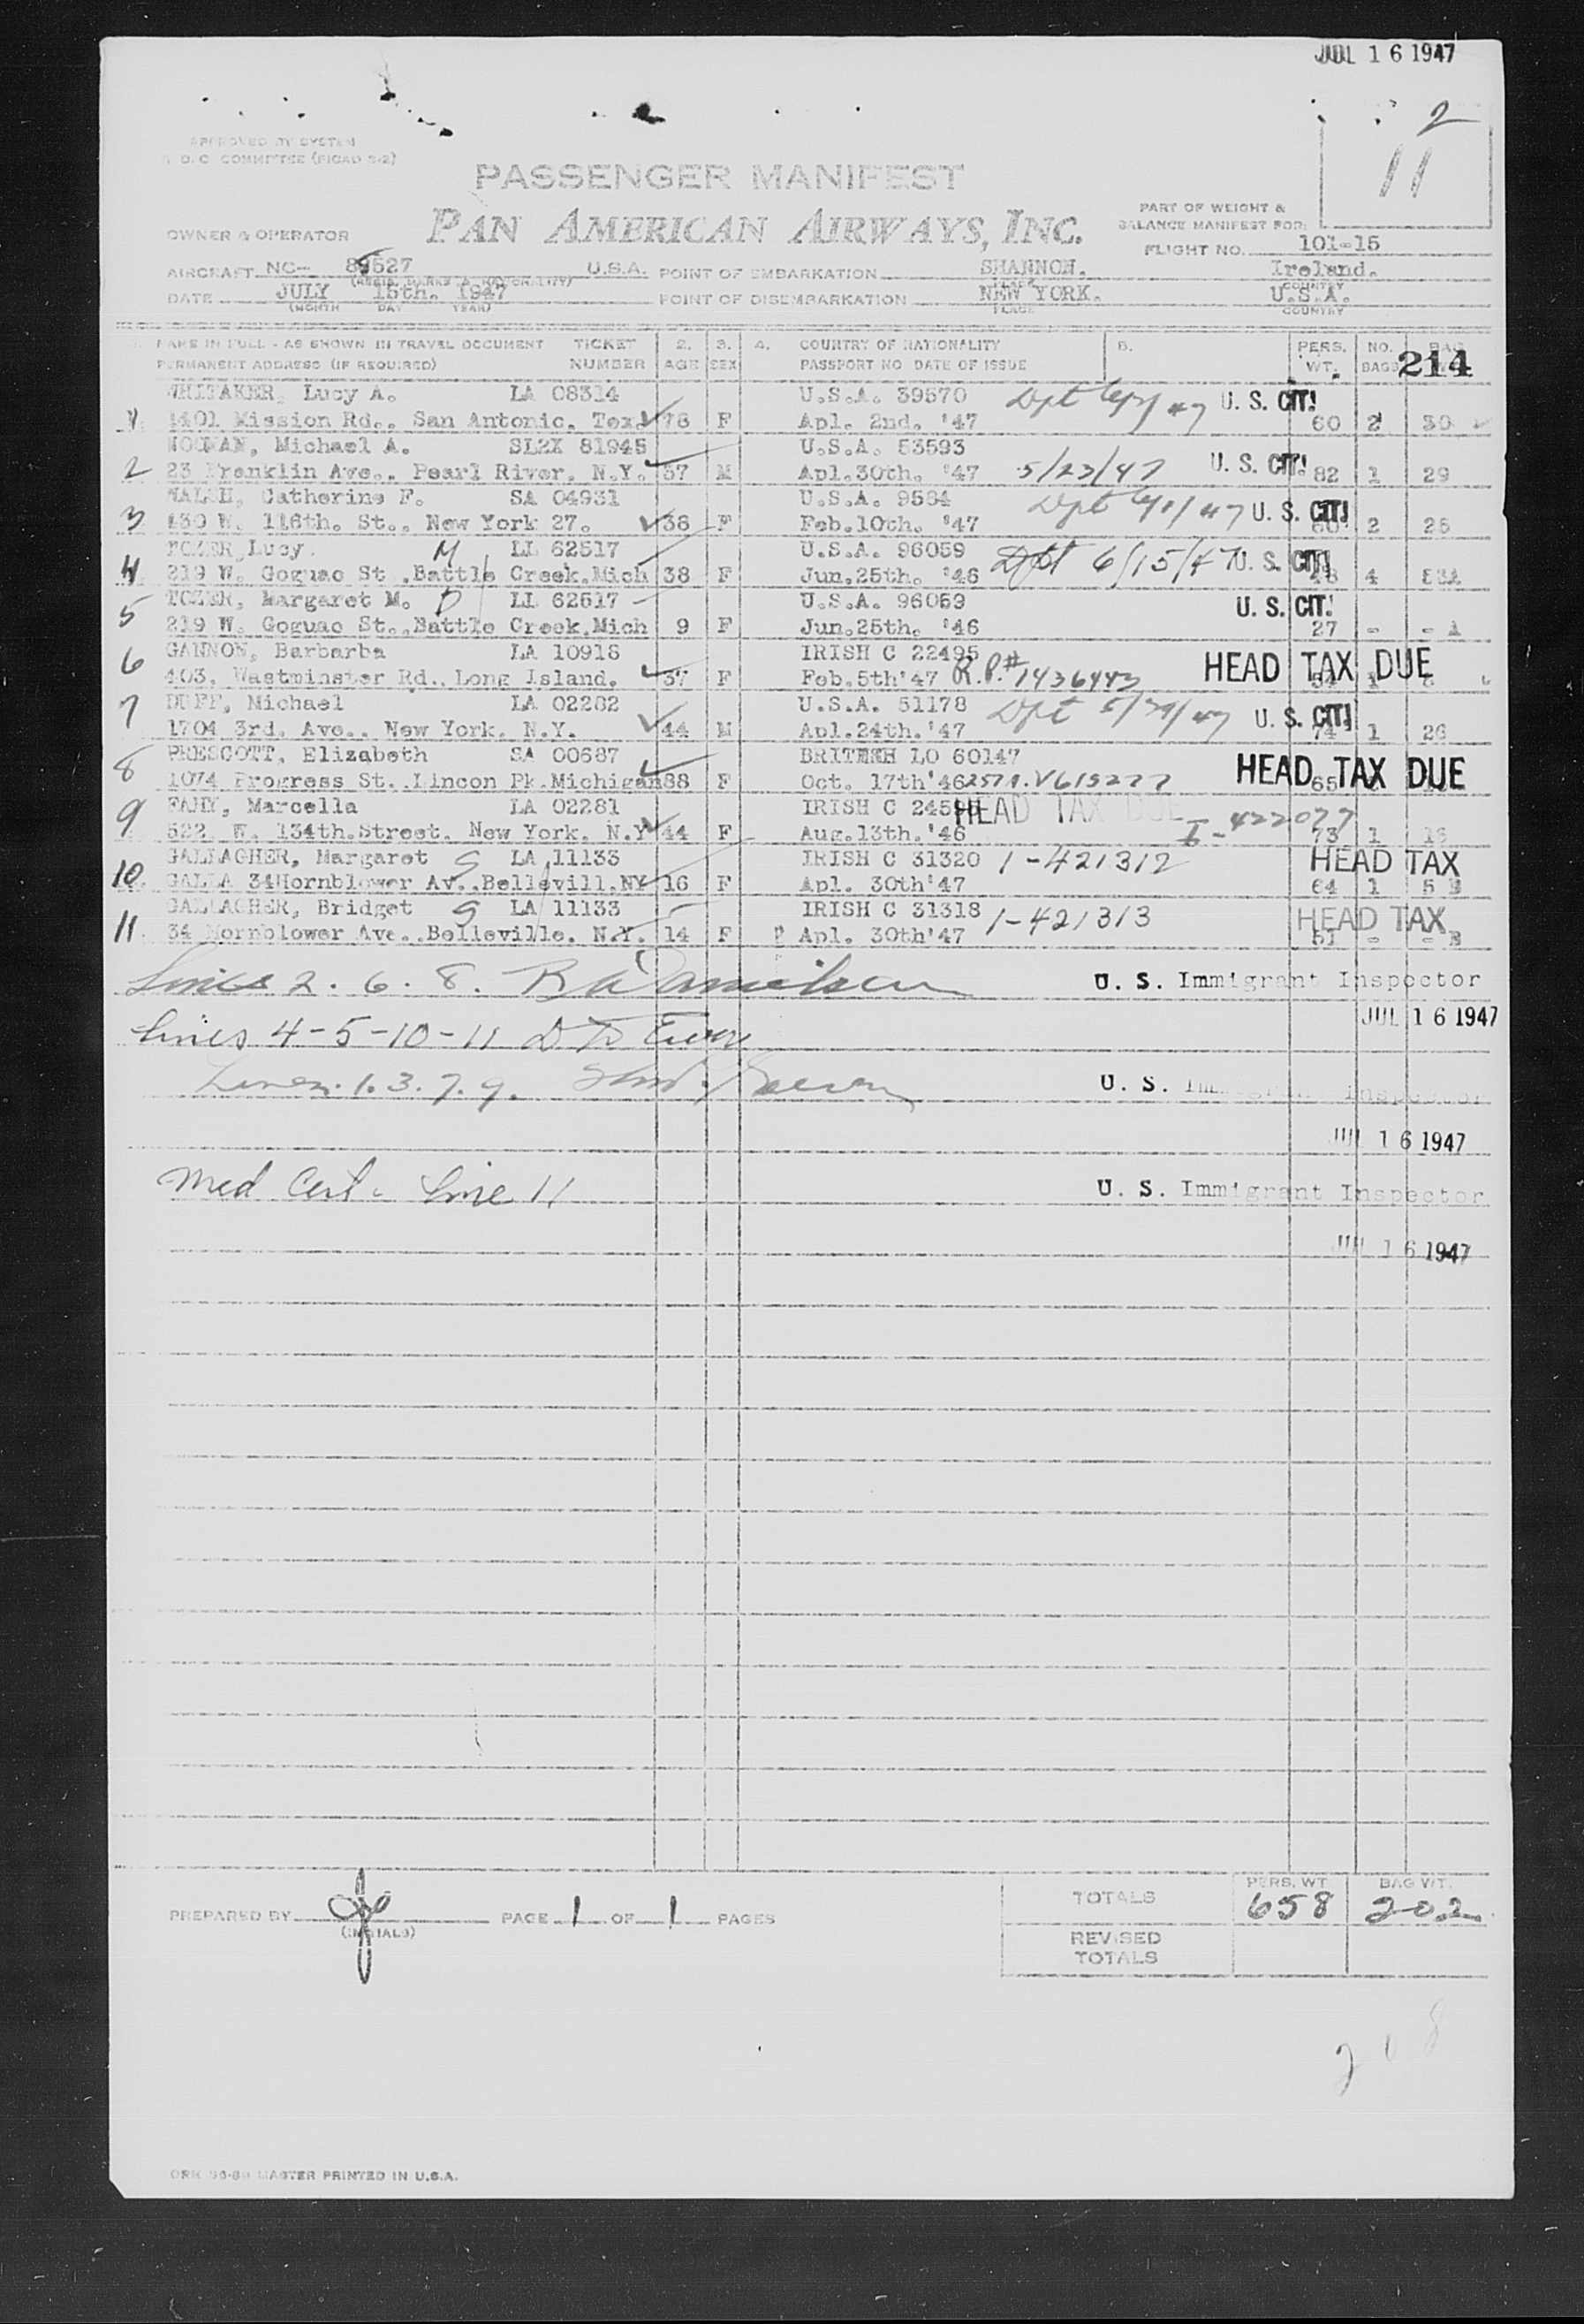 JUL 16 1947
2
11
APPROVED BY SYSTEM
COMMITTEE
PASSENGER MANIFEST
PAN AMERICAN AIRWAYS, INC.
OWNER & OPERATOR
PART OF WEIGHT &
BALANCE MANIFEST FOR:
FLIGHT NO. 101-15
AIRCRAFT NC- U.S.A. POINT OF EMBARKATION SHANNON. Ireland.
DATE JULY 15th. 1947 POINT OF DISEMBARKATION NEW YORK. U.S.A.
(MONTH DAY YEAR) PLACE COUNTRY
NAME IN FULL - AS SHOWN IN TRAVEL DOCUMENT TICKET 2. 3. 4. COUNTRY OF NATIONALITY PERS. NO. BAG
PERMANENT ADDRESS (IF REQUIRED) NUMBER AGE SEX PASSPORT NO DATE OF ISSUE WT. BAGS 214
WHITAKER, Lucy A. LA 08314 U.S.A. 39570 U. S. CIT!
1 1401 Mission Rd., San Antonio, Tex. F Apl. 2nd. '47 60 2
Michael A. SL2X 81945 U.S.A. 53593 5/23/47 U. S. CIT!
2 23 Franklin Ave., Pearl River, N.Y. 57 M Apl.30th. '47 82 1 29
WALSH, Catherine F. SA 04931 U.S.A. 9584 U. S. CIT!
3 W. 116th. St., New York 27. F Feb.10th. '47 2
TOZER, Lucy. M LL 62517 U.S.A. 96059 Dpt 6/15/47 U. S. CIT!
4 219 W. Goguac St.,Battle Creek,Mich 38 F Jun.25th. '46 4
TOZER, Margaret M. D LL 62517 U.S.A. 96059 U. S. CIT!
5 219 W. Goguac St.,Battle Creek,Mich 9 F Jun.25th. '46 27 - - A
GANNON, Barbarba LA 10918 IRISH C 22495 HEAD TAX DUE
6 403, Wastminster Rd., Long Island. 37 F Feb.5th'47 R.P.# 1436443
DUFF, Michael LA 02282 U.S.A. 51178 U. S. CIT!
7 1704 3rd. Ave., New York, N.Y. 44 M Apl.24th.'47 74 1 26
PRESCOTT, Elizabeth SA 00687 LO 60147 HEAD TAX DUE
8 1074 Progress St., Lincon Pk.Michigan F Oct. 17th'46 V615277 65
FAHY, Marcella LA 02281 IRISH C HEAD TAX DUE I-422077
9 522, W. 134th.Street, New York, N.Y 44 F Aug.13th.'46 73 1
GALLAGHER, Margaret G LA 11133 IRISH C 31320 1-421312 HEAD TAX
10 GALLA 34Hornblower Av.,Bellevill,NY 16 F Apl. 30th'47 64 1 5 B
GALLAGHER, Bridget G LA 11133 IRISH C 31318 1-421313 HEAD TAX
11 34 Hornblower Ave.,Belleville, N.Y. 14 F Apl. 30th'47 51 - - B
Lines 2. 6. 8. U. S. Immigrant Inspector
JUL 16 1947
Lines 4-5-10-11
Lines. 1. 3. 7. 9. U. S. Immigrant Inspector
JUL 16 1947
Med Cert. Line 11 U. S. Immigrant Inspector
JUL 16 1947
PREPARED BY PAGE 1 OF 1 PAGES TOTALS PERS. WT. 658 BAG WT. 202
(INITIALS) REVISED
TOTALS
208
MASTER PRINTED IN U.S.A.